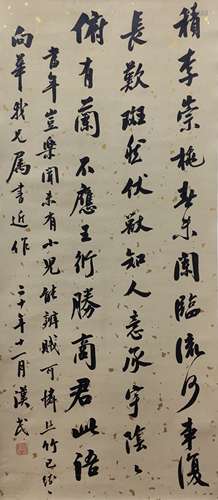 積李崇桃春未闌臨流何事復
長歎斑然伏獸知人意承宇陰〻
俯有蘭不應王衍勝商君此語
當年豈樂聞未有小兒能辨賊可憐上竹已紛〻
向華我兄属書近作 二十年十一月 漢民